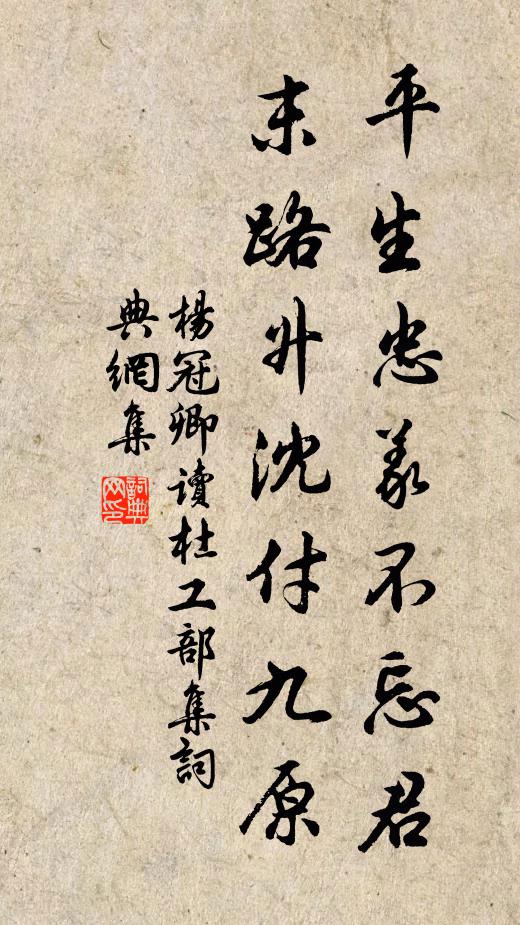 平生忠义不忘君
末路升沈付九原
楊冠卿讀杜工部集詞
典網集
詞典網印